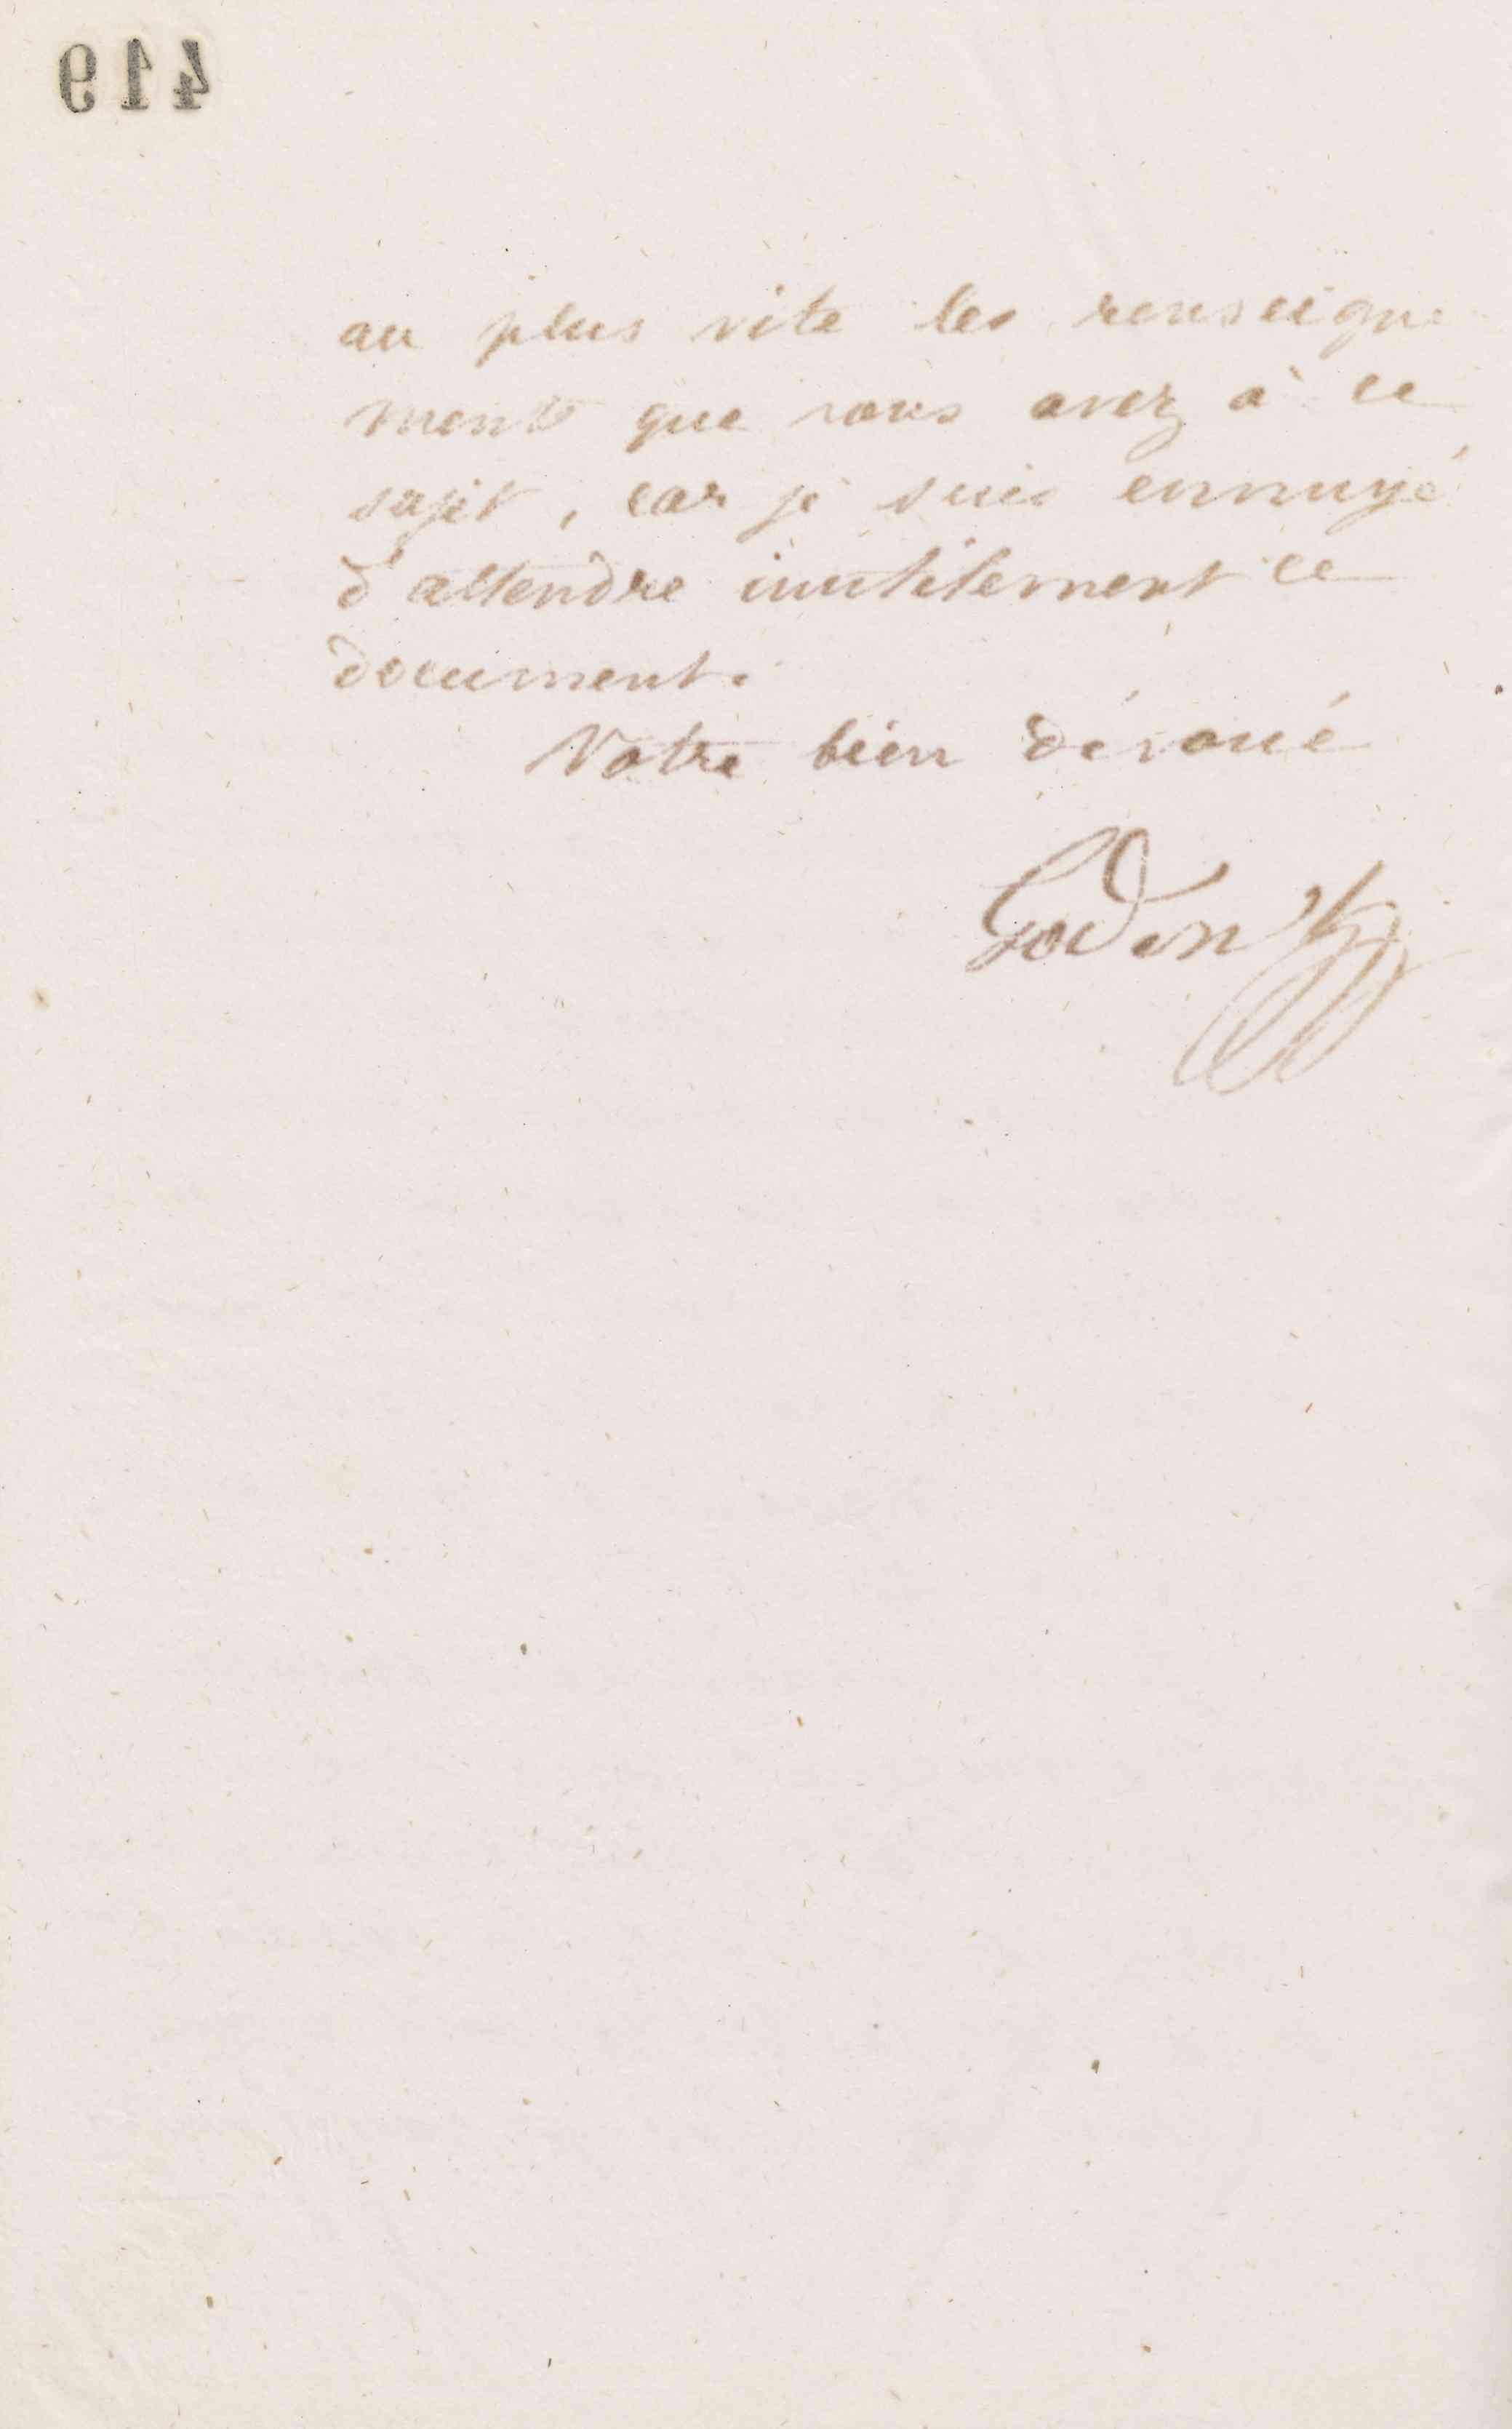 419
au plus vite les renseigne
ments que vous avez à ce
sujet, car je suis ennuyé
d'attendre inutilement ce
document.
Votre bien dévoué
Godin